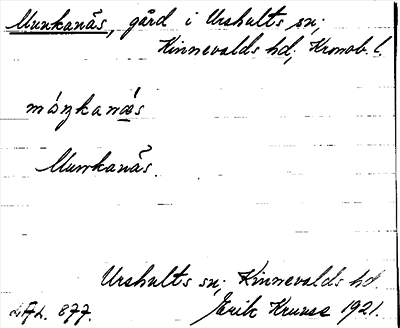 Munkanäs, gård i Urshults sn;
Kinnevalds hd; Kronob. l.
Munkanäs.
Urshults sn; Kinnevalds hd.
877. Erik Kruuse 1921.